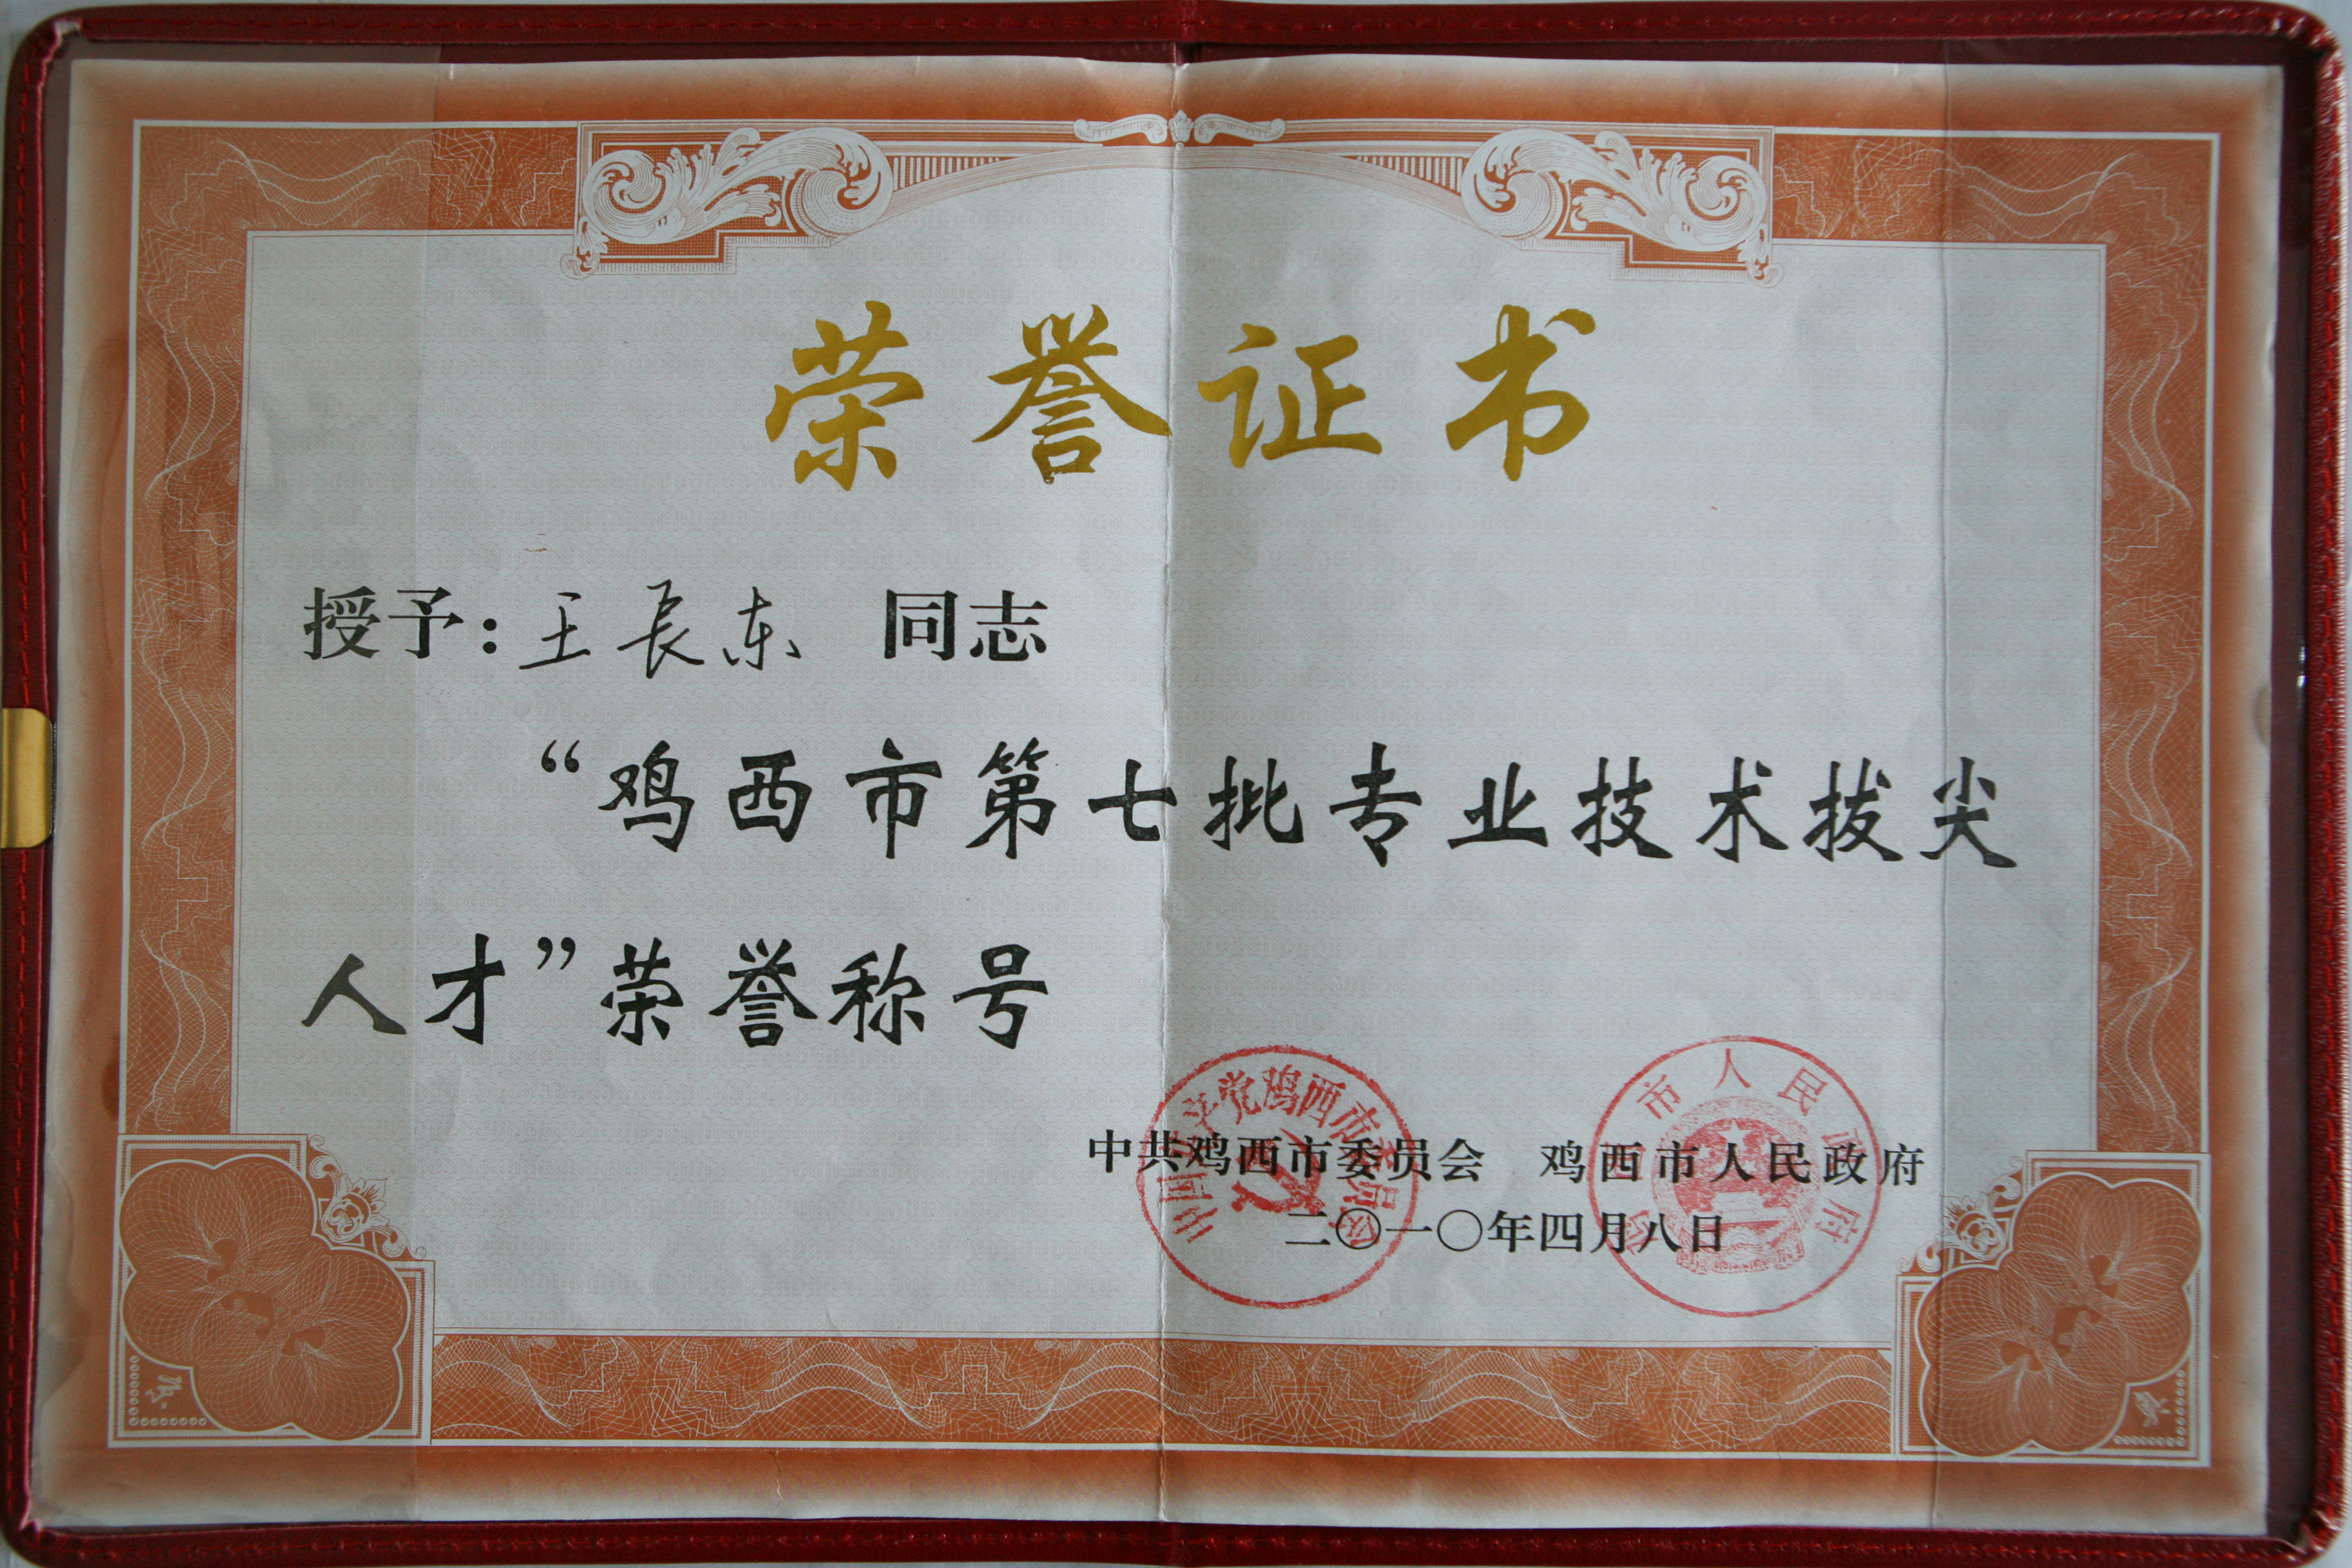 荣誉证书
授予：王长东 同志
“鸡西市第七批专业技术拔尖
人才”荣誉称号
中共鸡西市委员会 鸡西市人民政府
二〇一〇年四月八日
中国共产党鸡西市委员会
市人民政府